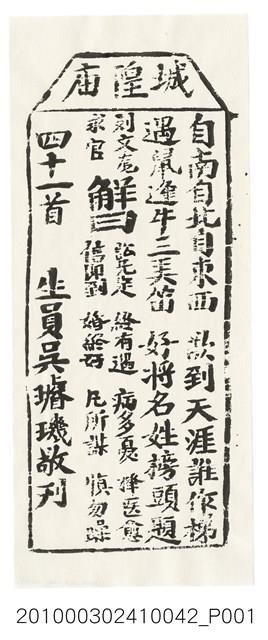 城隍庙
自南自北自東西 欲到天涯誰作梯
遇鼠逢牛三弄笛 好將名姓榜頭題
求官 解曰 訟先定 終有遇 病多憂 擇医愈
信卯到 婚終好 凡所謀 慎勿躁
四十一首 生員吳璿璣敬刊
201000302410042_P001